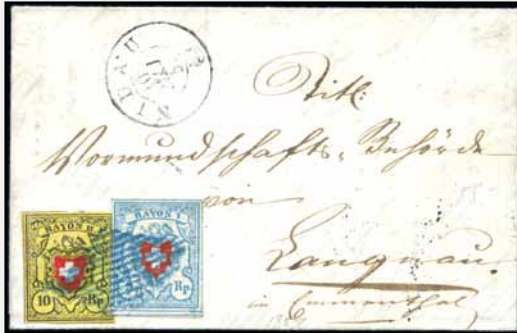 NIDAU
Titl:
Vormundschafts-Behörde
von
Langnau.
in Emmenthal
RAYON II.
10 Rp.
RAYON I.
Rp.